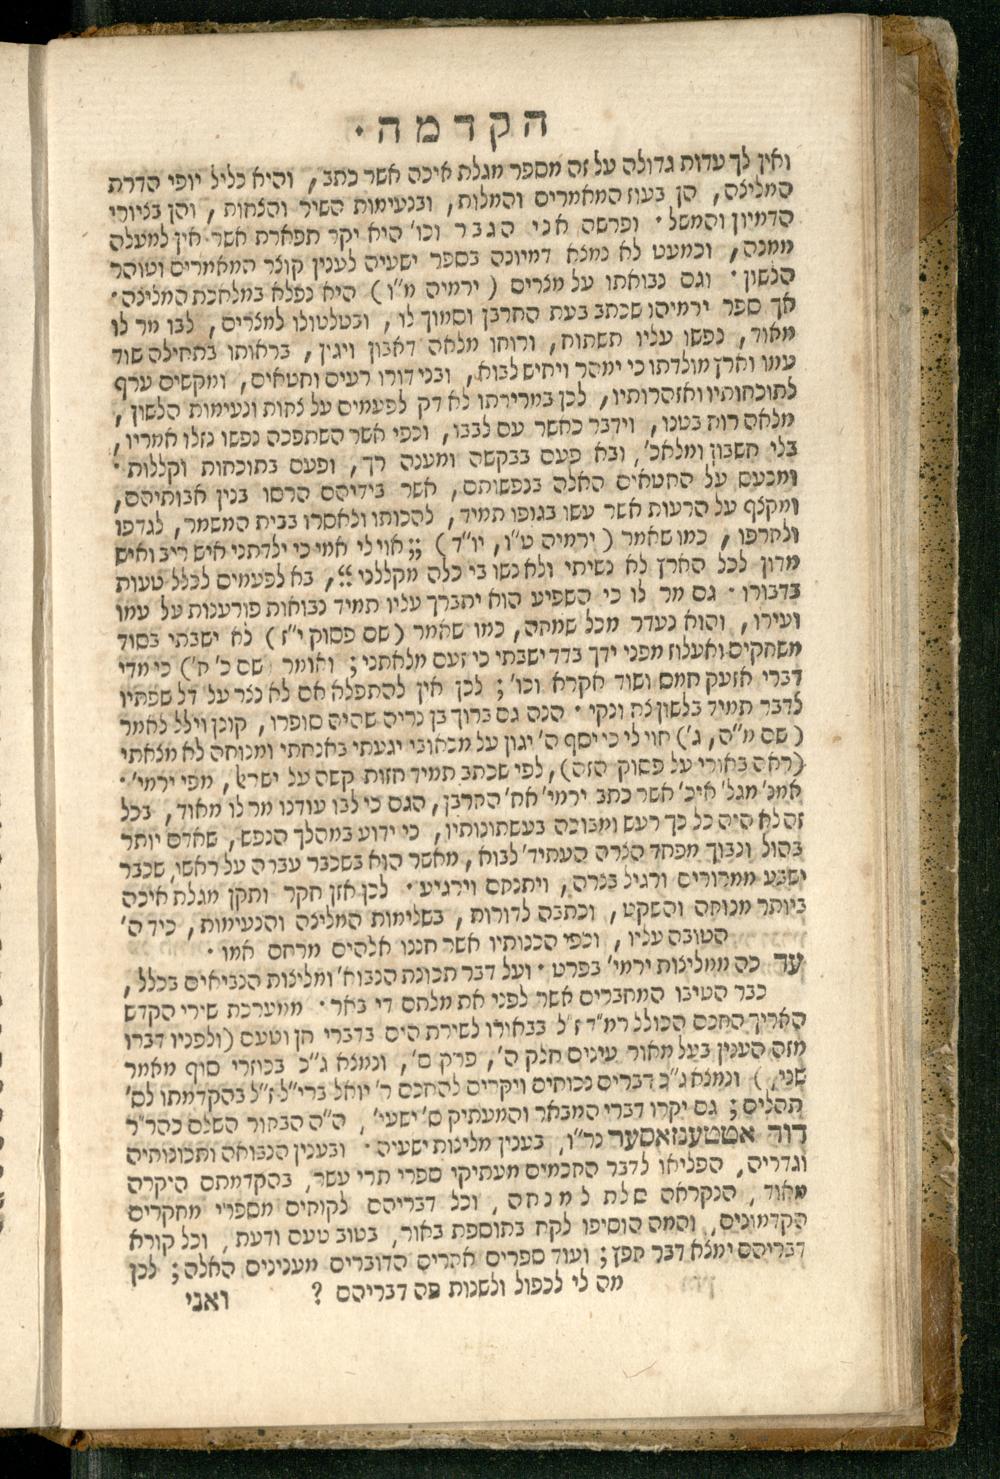 הקדמה·
ואין לך עדות גדולה על זה מספר מגלת איכה אשר כתב, והיא כליל יופי הדרת
המליצה, הן בעוז המאמרים והמלות, ובנעימות השיר והצחות, והן בציורי
הדמיון והמשל· ופרשה אני הגבר וכו' היא יקר תפארת אשר אין למעלה
ממנה, וכמעט לא נמצא דמיונה בספר ישעיה לענין קוצר המאמרים וטוהר
הלשון· וגם נבואתו על מצרים (ירמיה מ"ו) היא נפלא במלאכת המליצה·
אך ספר ירמיהו שכתב בעת החרבן וסמוך לו, ובטלטולו למצרים, לבו מר לו
מאוד, נפשו עליו תשתוח, ורוחו מלאה דאבון ויגון, בראותו בתחילה שוד
עמו וארץ מולדתו כי ימהר ויחיש לבוא, ובני דורו רעים וחטאים, ומקשים ערף
לתוכחותיו ואזהרותיו, לכן במרירתו לא דק לפעמים על צחות ונעימות הלשון,
מלאה רוח בטנו, וידבר כאשר עם לבבו, וכפי אשר השתפכה נפשו נזלו אמריו,
בלי חשבון ומלאכ', ובא פעם בבקשה ומענה רך, ופעם בתוכחות וקללות·
ומכעס על החטאים האלה בנפשותם, אשר בידיהם הרסו בנין אבותיהם,
ומקצף על הרעות אשר עשו בגופו תמיד, להכותו ולאסרו בבית המשמר, לגדפו
ולחרפו, כמו שאמר (ירמיה ט"ו, יו"ד) ;; אוי לי אמי כי ילדתני איש ריב ואיש
מדון לכל הארץ לא נשיתי ולא נשו בי כלה מקללני ;;, בא לפעמים לכלל טעות
בדבורו· גם מר לו כי השפיע הוא יתברך עליו תמיד נבואות פורענות על עמו
ועירו, והוא נעדר מכל שמחה, כמו שאמר (שם פסוק י"ז) לא ישבתי בסוד
משחקים ואעלוז מפני ידך בדד ישבתי כי זעם מלאתני; ואומר (שם כ' ח') כי מדי
דברי אזעק חמס ושוד אקרא וכו'; לכן אין להתפלא אם לא נצר על דל שפתיו
לדבר תמיד בלשון צח ונקי· הנה גם ברוך בן נריה שהיה סופרו, קונן וילל לאמר
(שם מ"ה, ג') אוי לי כי יסף ה' יגון על מכאובי יגעתי באנחתי ומנוחה לא מצאתי
(ראה באורי על פסוק הזה), לפי שכתב תמיד חזות קשה על ישראל, מפי ירמי'·
אמנ' מגל' איכ' אשר כתב ירמי' אח' החרבן, הגם כי לבו עודנו מר לו מאוד, בכל
זה לא היה כל כך רעש ומבוכה בעשתונותיו, כי ידוע במהלך הנפש, שאדם יותר
בהול ונבוך מפחד הצרה העתיד' לבוא, מאשר הוא בשכבר עברה על ראשו, שכבר
ישבע ממרורים ורגיל בצרה, ויתנחם וירגיע· לכן אזן חקר ותקן מגלת איכה
ביותר מנוחה והשקט, וכתבה לדורות, בשלימות המליצה והנעימות, כיד ה'
הטובה עליו, וכפי הכנותיו אשר חננו אלהים מרחם אמו·
עד כה ממליצות ירמי' בפרט· ועל דבר תכונת הנבוא' ומליצות הנביאים בכלל,
כבר הטיבו המחברים אשר לפני את מלתם די באר· ממערכת שירי הקדש
האריך החכם הכולל רמ"ד ז"ל בבאורו לשירת הים בדברי חן וטעם (ולפניו דברו
מזה הענין בעל מאור עינים חלק ה', פרק ס', ונמצא ג"כ בכוזרי סוף מאמר
שני,) ונמצא ג"כ דברים נכוחים ויקרים להחכם ר' יואל ברי"ל ז"ל בהקדמתו לס'
תהלים; גם יקרו דברי המבאר והמעתיק ס' ישעי', ה"ה הבחור השלם כהר"ר
דוד אטטענזאססער נר"ו, בענין מליצות ישעיה· ובענין הנבואה ותכונותיה
וגדריה, הפליאו לדבר החכמים מעתיקי ספרי תרי עשר, בהקדמתם היקרה
מאוד, הנקראה סלת למנחה, וכל דבריהם לקוחים מספרי מחקרים
הקדמונים, והמה הוסיפו לקח בתוספת באור, בטוב טעם ודעת, וכל קורא
דבריהם ימצא דבר חפץ; ועוד ספרים אחרים הדוברים מענינים האלה; לכן
מה לי לכפול ולשנות פה דבריהם?
ואני